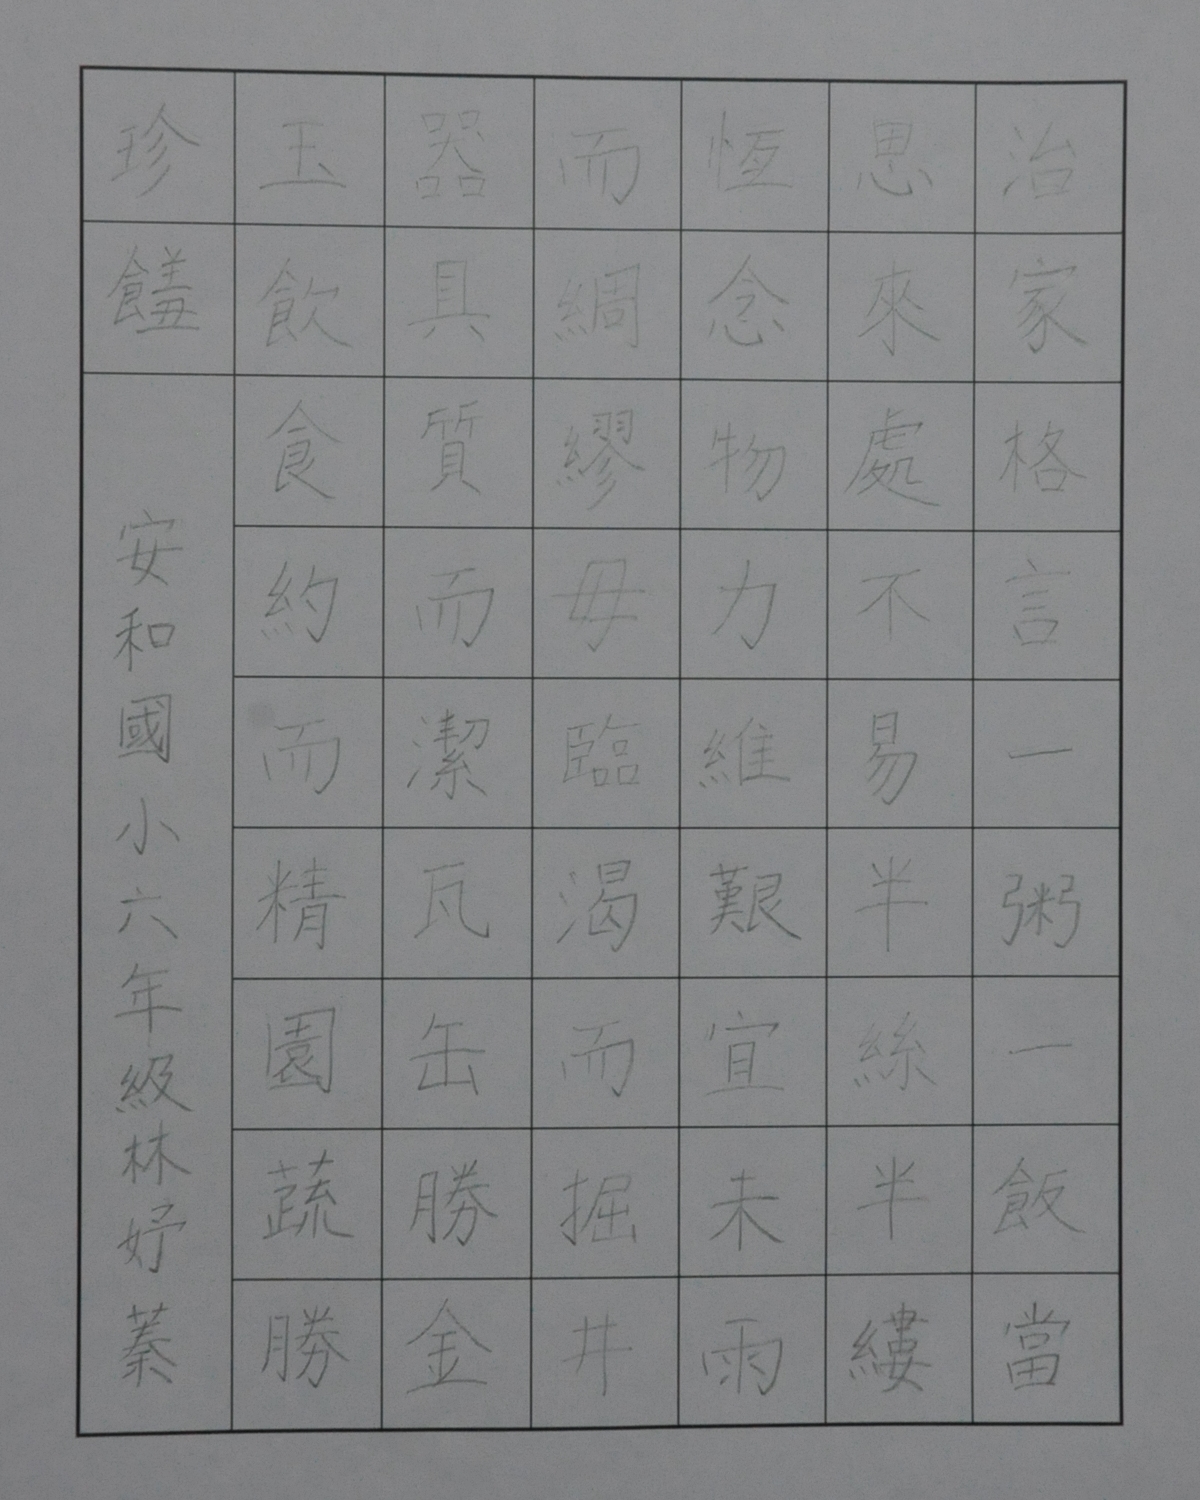 治家格言一粥一飯當
思來處不易半絲半縷
恆念物力維艱宜未雨
而綢繆毋臨渴而掘井
器具質而潔瓦缶勝金
玉飲食約而精園蔬勝
珍饈
安和國小六年級林妤蓁